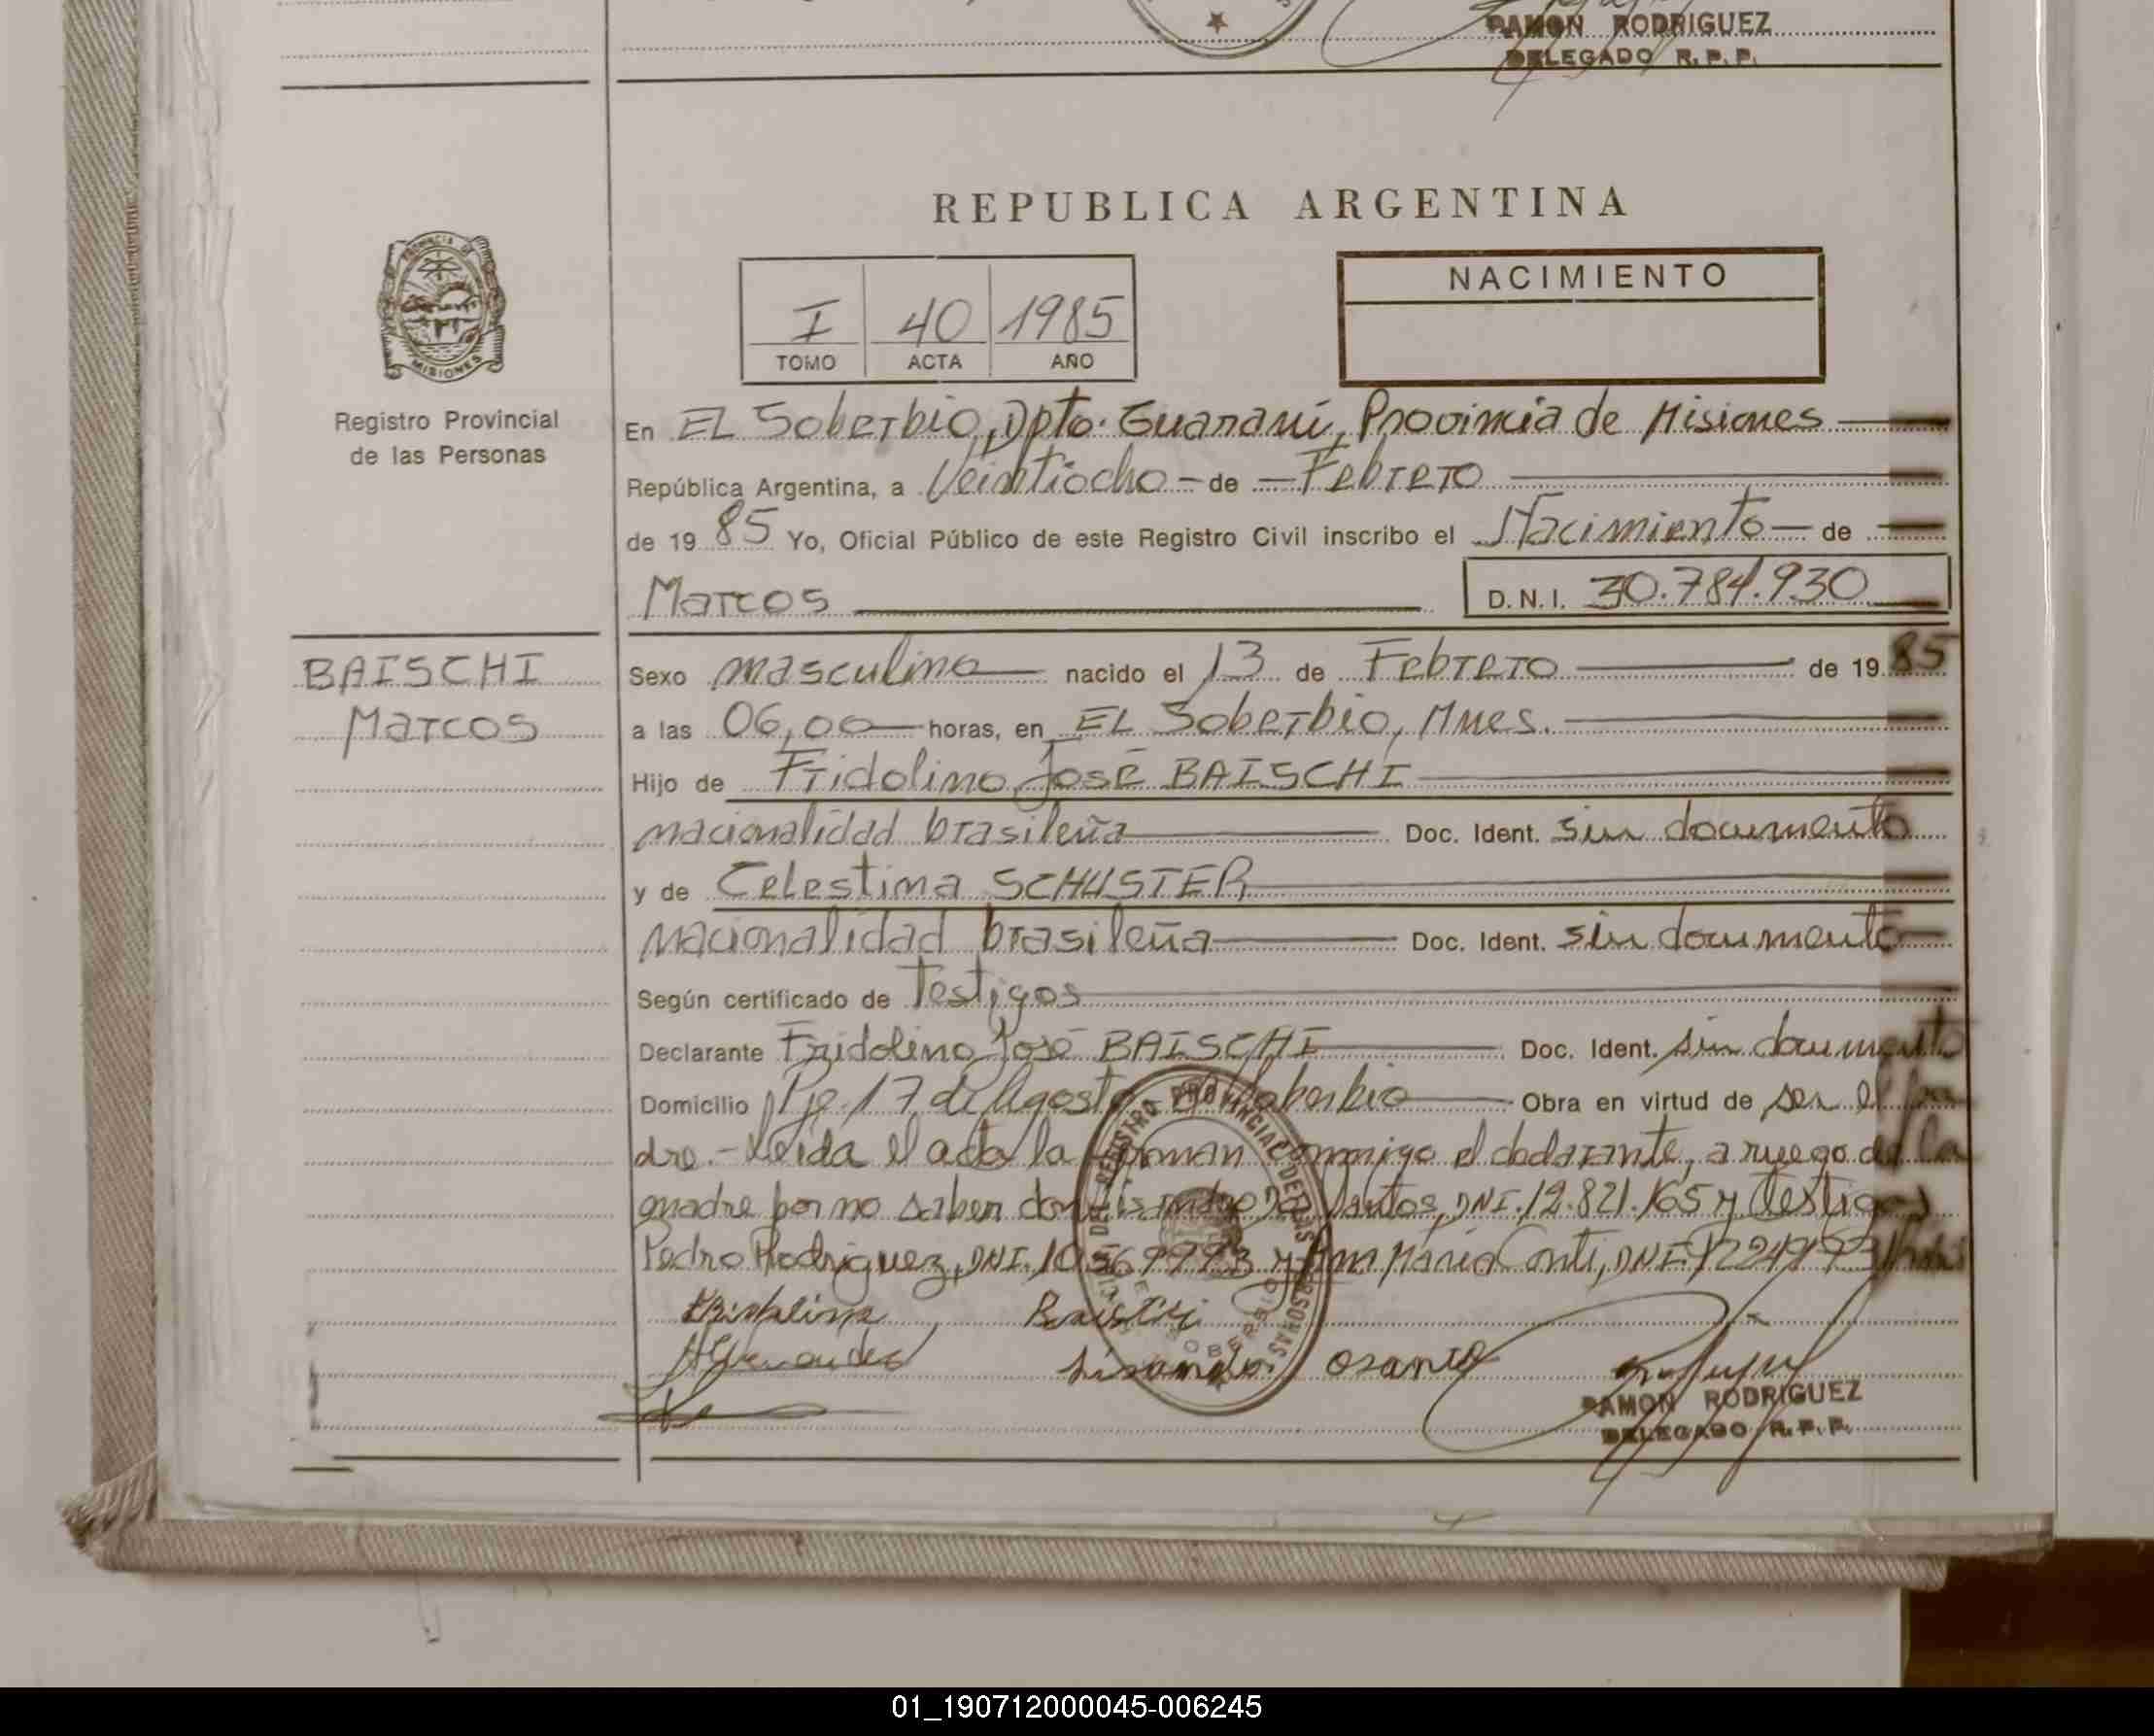 RAMON RODRIGUEZ
DELEGADO R. P. P.
REPUBLICA ARGENTINA
PROVINCIA DE
MISIONES
Registro Provincial
de las Personas
I 40 1985
TOMO ACTA AÑO
NACIMIENTO
En EL Soberbio, Dpto. Guaraní, Provincia de Misiones
República Argentina, a Veintiocho - de - Febrero
de 19 85 Yo, Oficial Público de este Registro Civil inscribo el Nacimiento - de
Marcos D.N.I. 30.784.930
BAISCHI
Marcos
Sexo masculino nacido el 13 de Febrero de 19 85
a las 06,00 horas, en EL Soberbio, Mnes.
Hijo de Fridolino José BAISCHI
nacionalidad brasileña Doc. Ident. sin documento
y de Celestina SCHUSTER
nacionalidad brasileña Doc. Ident. sin documento
Según certificado de Testigos
Declarante Fridolino José BAISCHI Doc. Ident. sin documento
Domicilio Pje. 17 de Agosto Soberbio Obra en virtud de ser el pa
dre.- Leida el acta la firman conmigo el declarante, a ruego de la
madre por no saber Santos, DNI. 12.821.165 y testigos
Pedro Rodriguez, DNI. Conti, DNI.
Baischi
Lisandro
RAMON RODRIGUEZ
DELEGADO R. P. P.
01_190712000045-006245